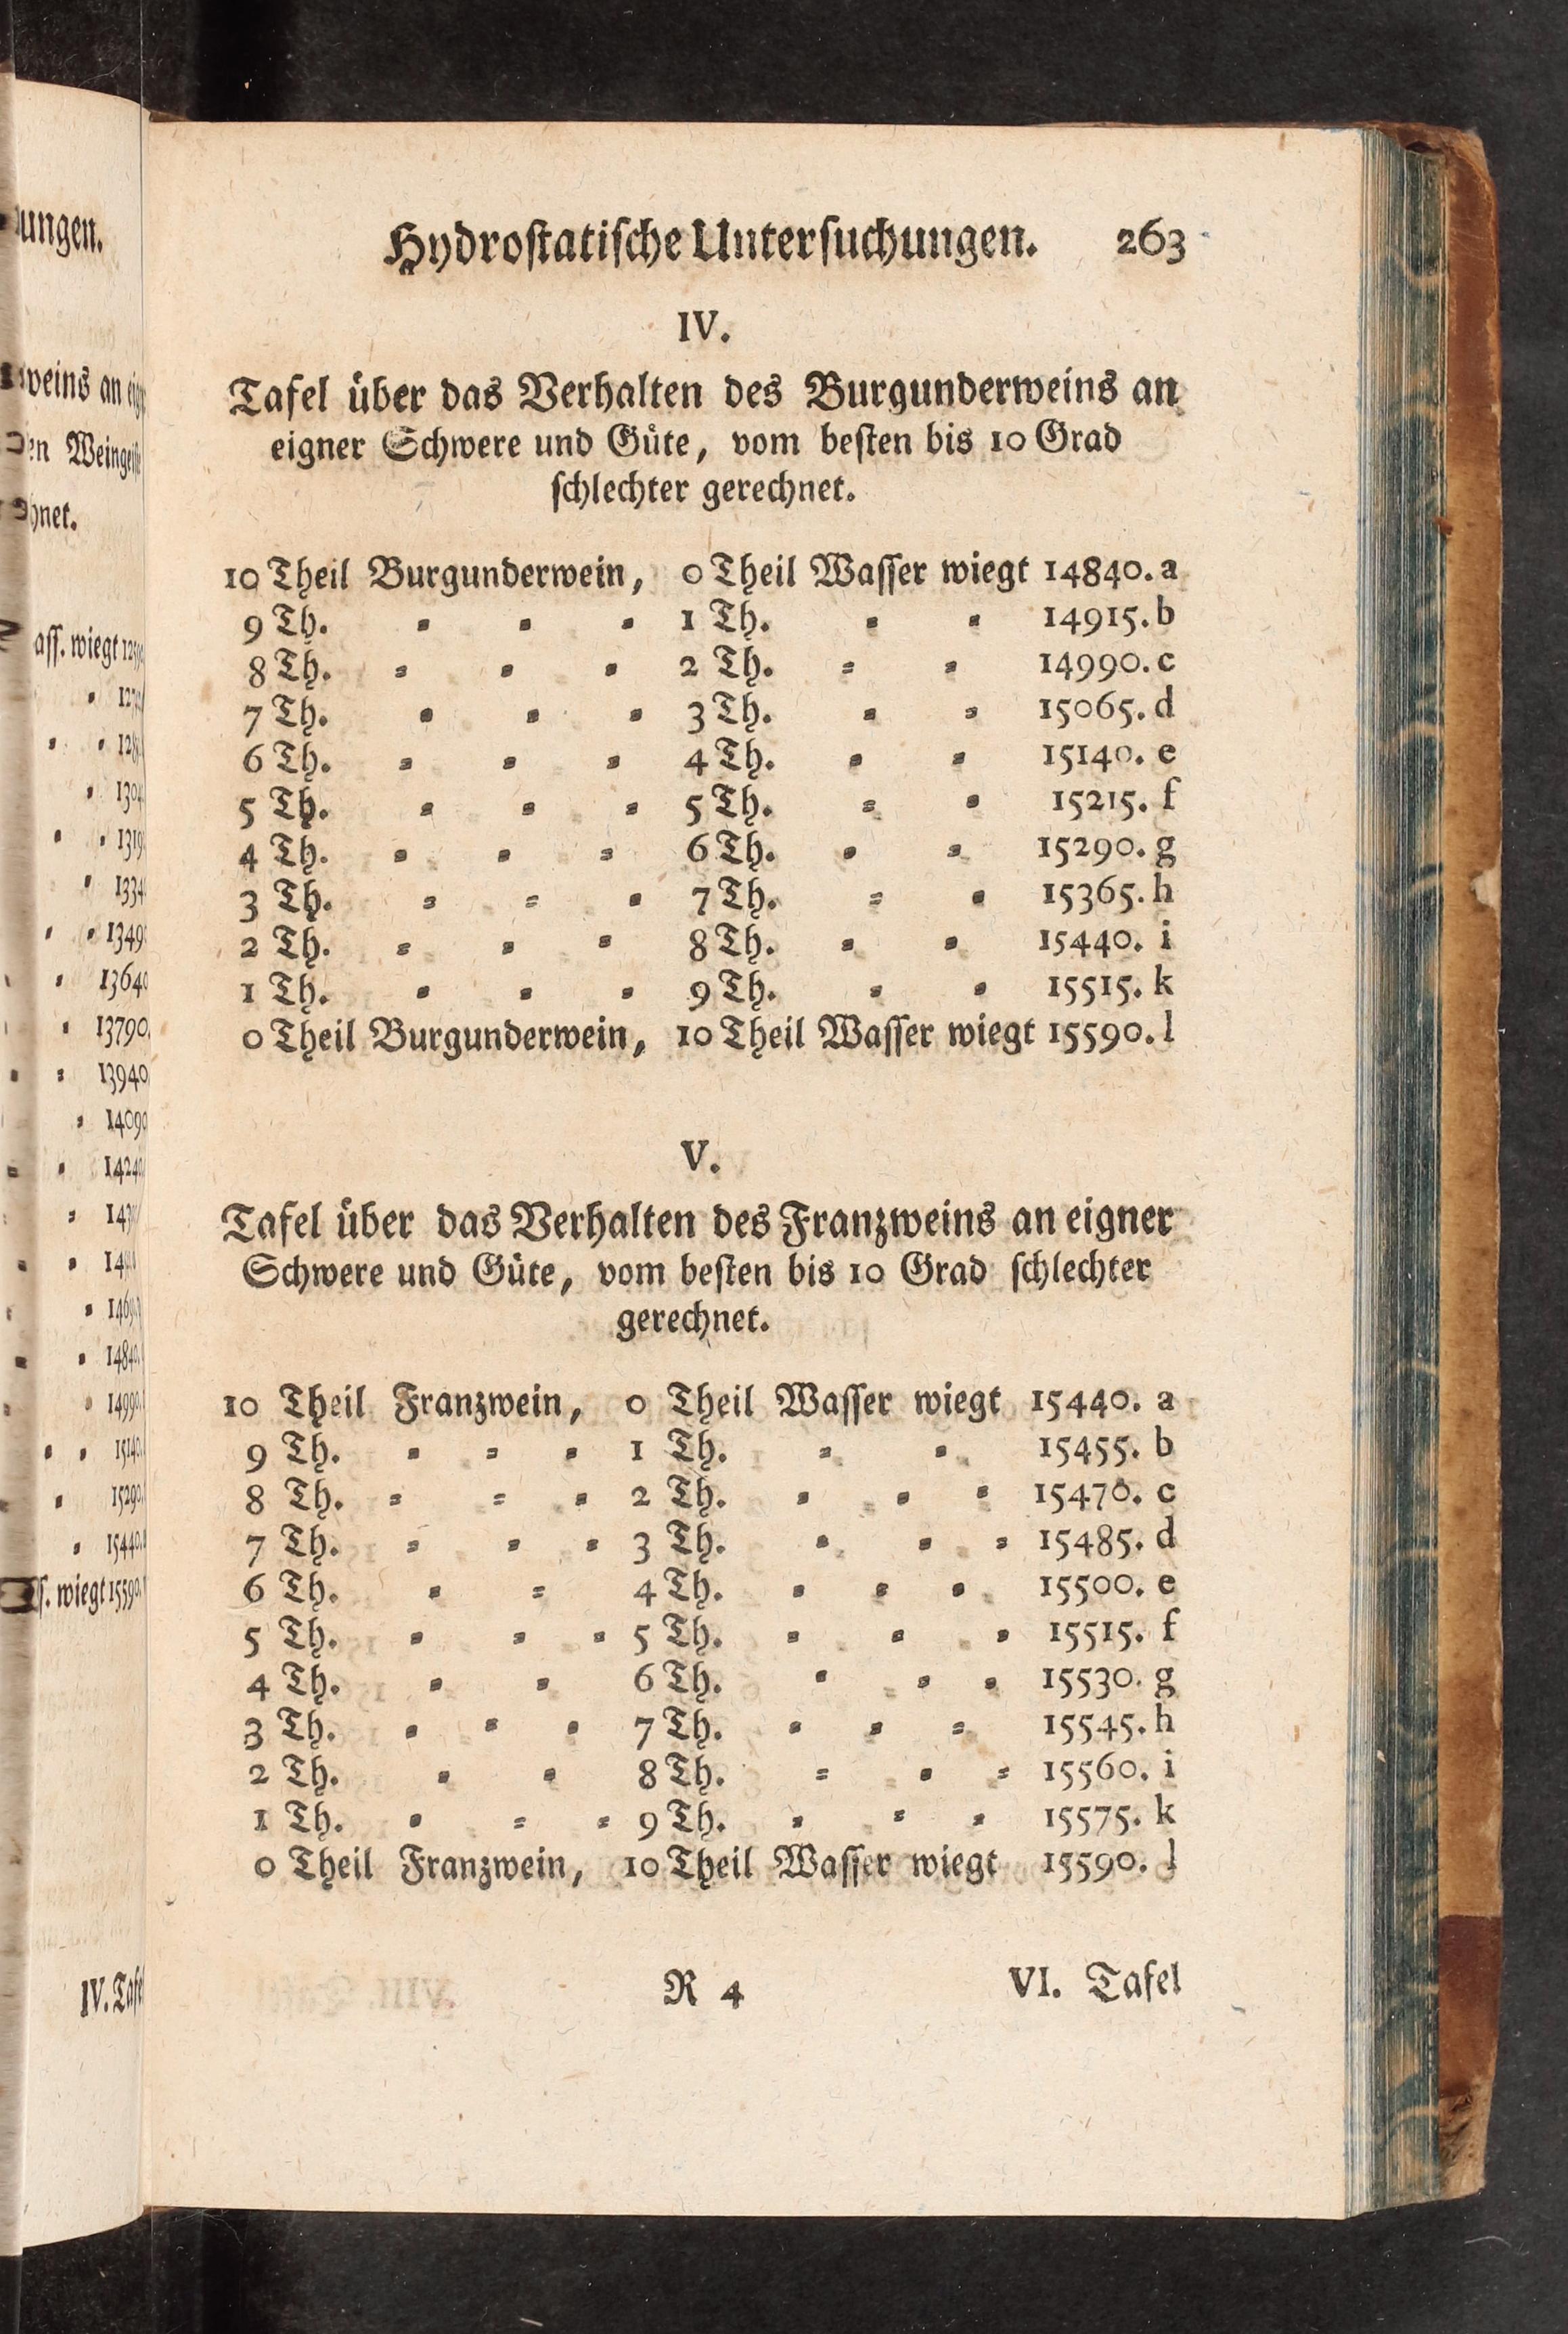 ungen.
weins an
en Weingeist
hnet.
aſſ. wiegt
13790.
13940
14090
14240
14840.
14990.
15140.
15290.
15440.
ſ. wiegt 15590.
IV. Tafel
Hydroſtatiſche Unterſuchungen. 263
IV.
Tafel über das Verhalten des Burgunderweins an
eigner Schwere und Güte, vom beſten bis 10 Grad
ſchlechter gerechnet.
10 Theil Burgunderwein, 0 Theil Waſſer wiegt 14840. a
9 Th. = = = 1 Th. = = 14915. b
8 Th. = = = 2 Th. = = 14990. c
7 Th. = = = 3 Th. = = 15065. d
6 Th. = = = 4 Th. = = 15140. e
5 Th. = = = 5 Th. = = 15215. f
4 Th. = = = 6 Th. = = 15290. g
3 Th. = = = 7 Th. = = 15365. h
2 Th. = = = 8 Th. = = 15440. i
1 Th. = = = 9 Th. = = 15515. k
0 Theil Burgunderwein, 10 Theil Waſſer wiegt 15590. l
V.
Tafel über das Verhalten des Franzweins an eigner
Schwere und Güte, vom beſten bis 10 Grad ſchlechter
gerechnet.
10 Theil Franzwein, 0 Theil Waſſer wiegt 15440. a
9 Th. = = = 1 Th. = = 15455. b
8 Th. = = = 2 Th. = = = 15470. c
7 Th. = = = 3 Th. = = = 15485. d
6 Th. = = 4 Th. = = = 15500. e
5 Th. = = = 5 Th. = = = 15515. f
4 Th. = = 6 Th. = = = 15530. g
3 Th. = = = 7 Th. = = = 15545. h
2 Th. = = 8 Th. = = = 15560. i
1 Th. = = = 9 Th. = = = 15575. k
0 Theil Franzwein, 10 Theil Waſſer wiegt 15590. l
R 4 VI. Tafel